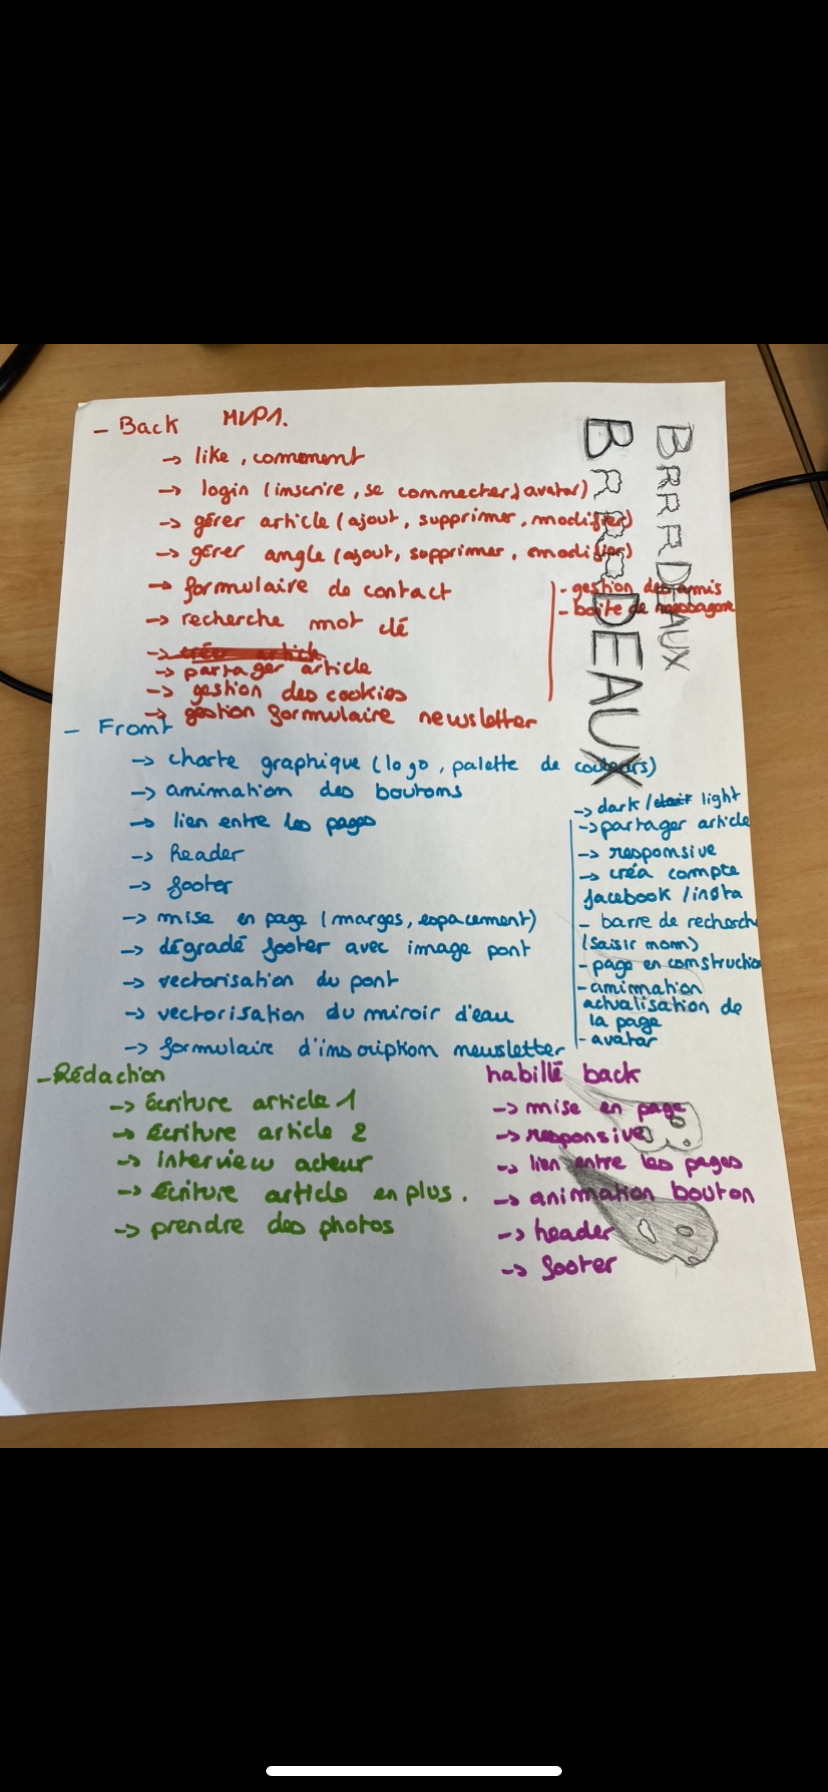 - Back MVP1.
-> like, comment
-> login (inscrire, se connecter, avatar)
-> gérer article (ajout, supprimer, modifier)
-> gérer angle (ajout, supprimer, modifier)
-> formulaire de contact
-> recherche mot clé
-> créer article
-> partager article
-> gestion des cookies
-> gestion formulaire newsletter
- gestion des amis
- boite de
BRRRDEAUX
BRRRDEAUX
- Front
-> charte graphique (logo, palette de couleurs)
-> animation des boutons
-> lien entre les pages
-> header
-> footer
-> mise en page (marges, espacement)
-> dégradé footer avec image pont
-> vectorisation du pont
-> vectorisation du miroir d'eau
-> formulaire d'inscription newsletter
-> dark / clair light
-> partager article
-> responsive
-> créa compte
facebook / insta
- barre de recherche
(saisir nom)
- page en construction
- animation
actualisation de
la page
- avatar
- Rédaction
-> écriture article 1
-> écriture article 2
-> interview acteur
-> écriture article en plus.
-> prendre des photos
habillé back
-> mise en page
-> responsive
-> lien entre les pages
-> animation bouton
-> header
-> footer